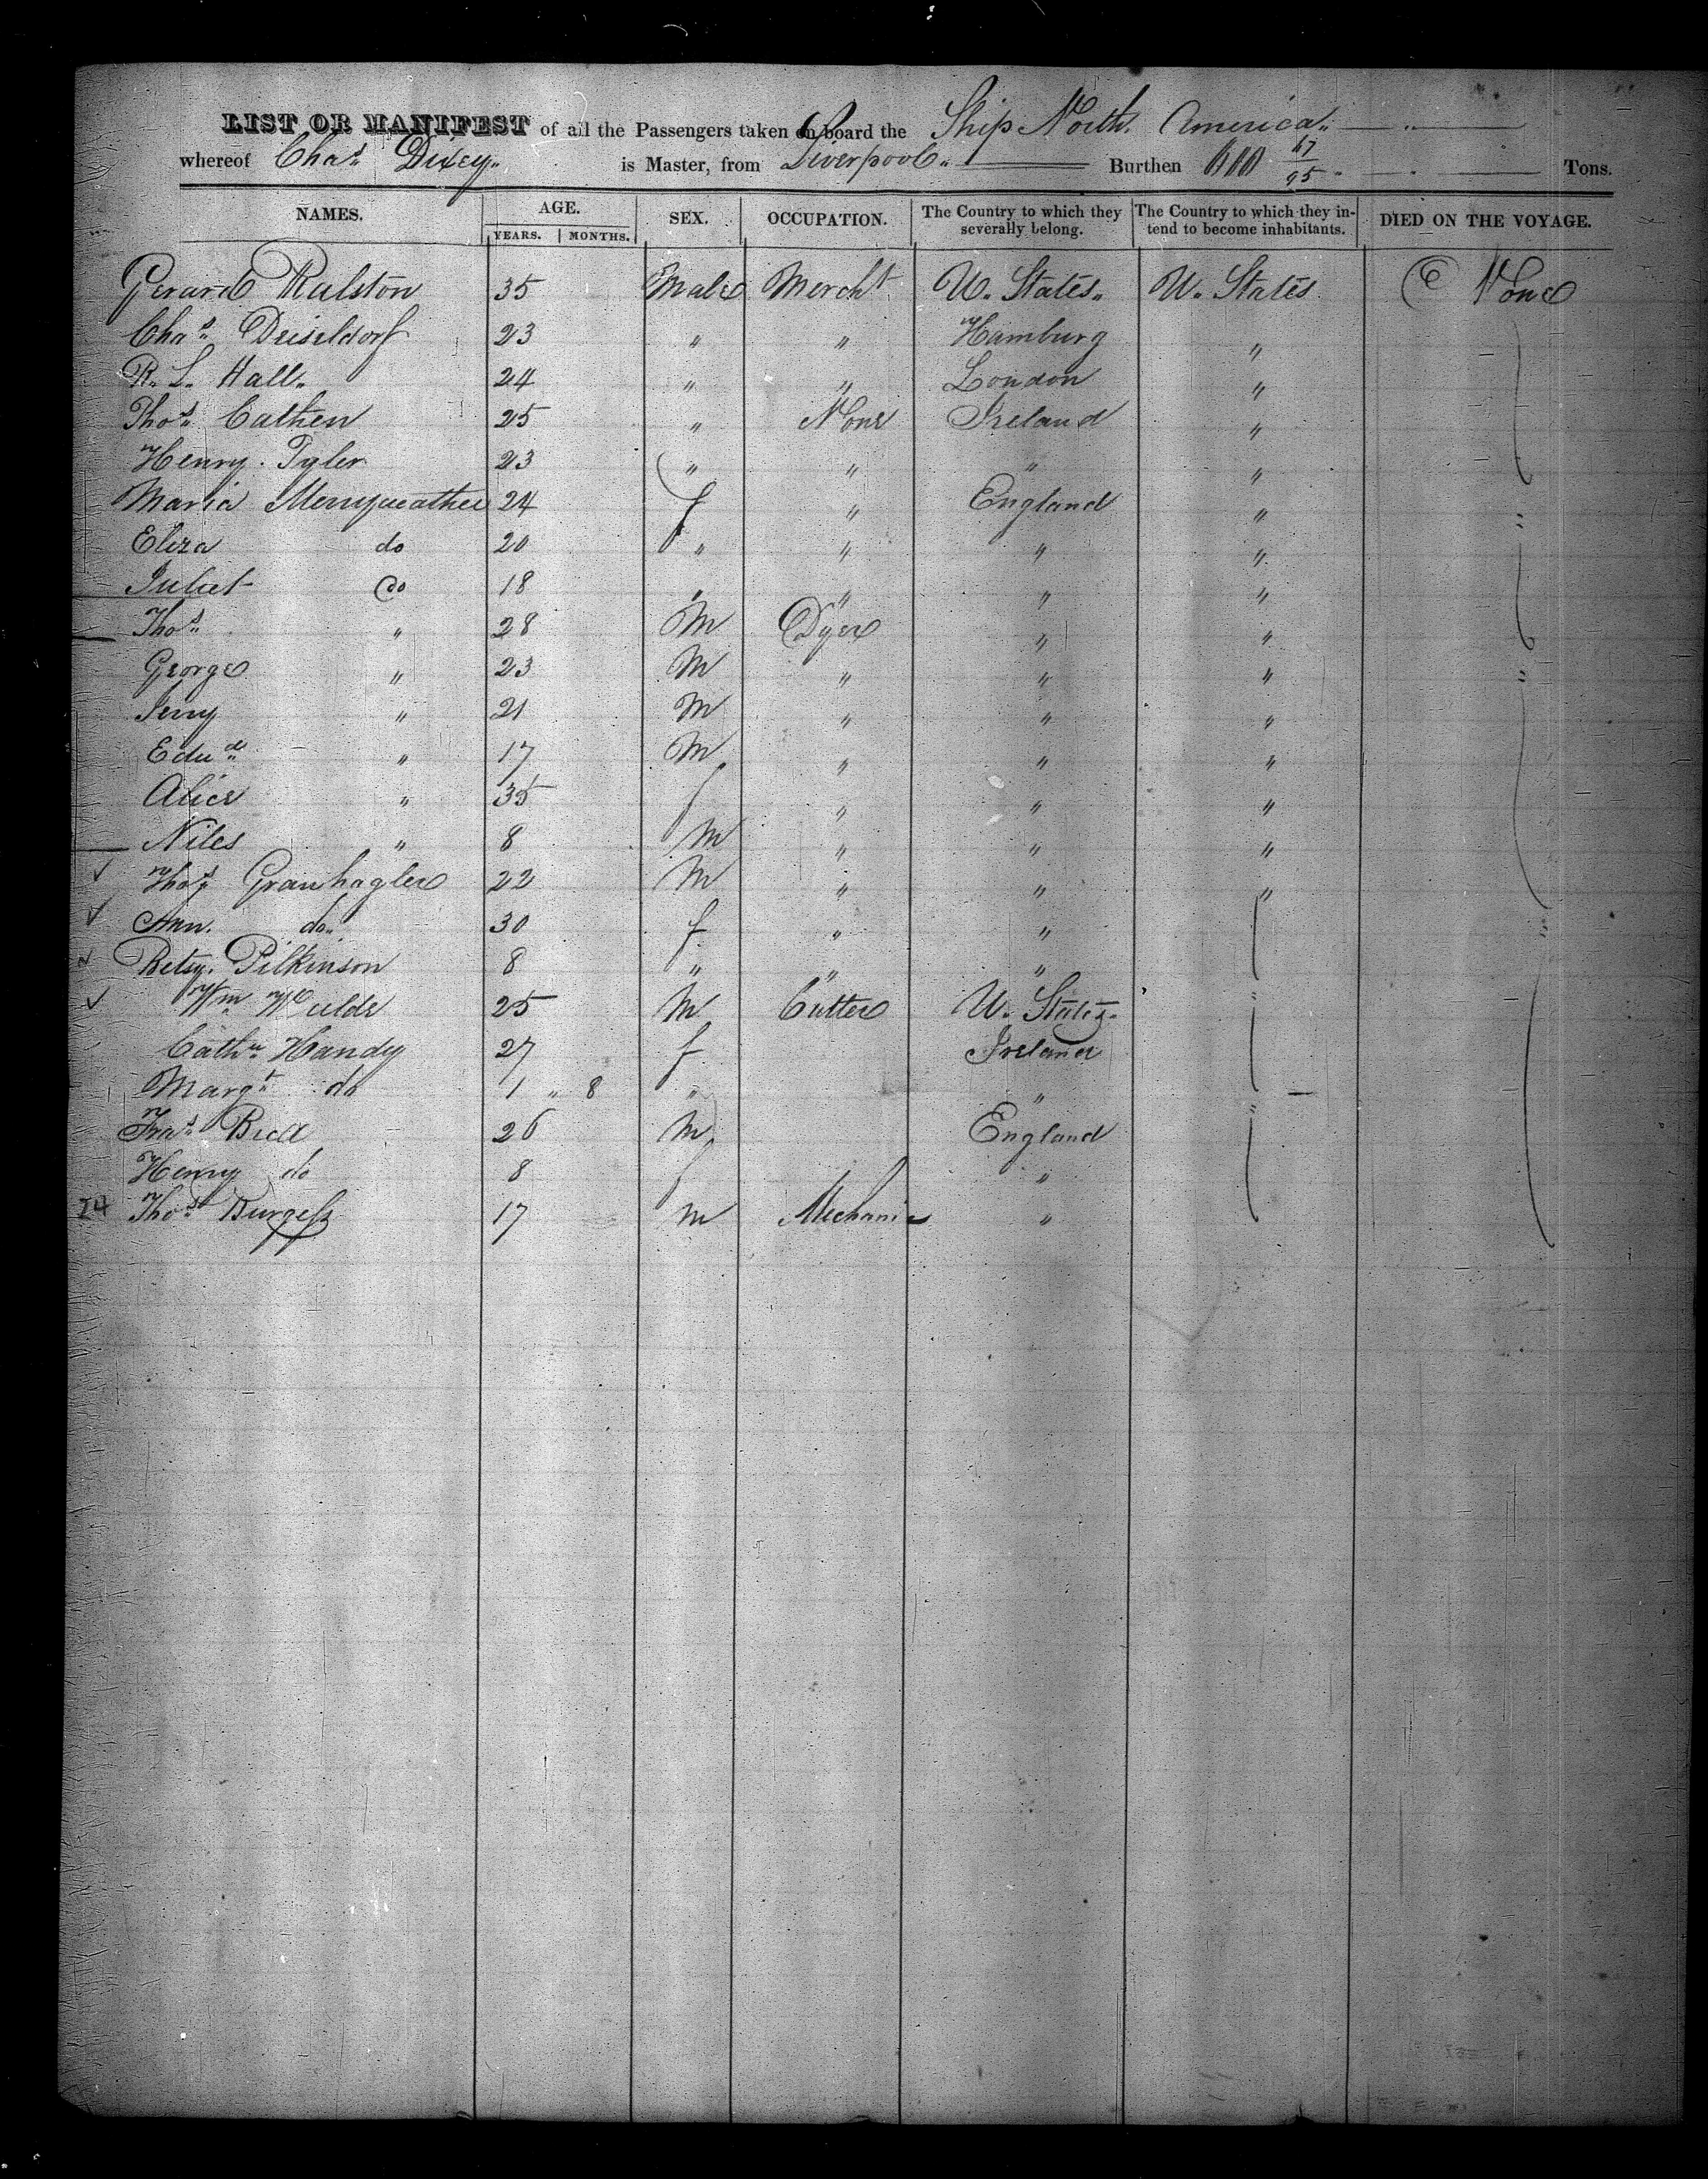 LIST OR MANIFEST of all the Passengers taken on board the Ship North America
whereof Chas Dixey is Master, from Liverpool Burthen 610 67/95 Tons.
NAMES. AGE. YEARS. MONTHS. SEX. OCCUPATION. The Country to which they severally belong. The Country to which they intend to become inhabitants. DIED ON THE VOYAGE.
Gerard Ralston 35 Male Mercht U. States U. States None
Chas Deiseldorf 23 " " Hamburg "
R. L. Hall 24 " " London "
Thos Cathen 25 " None Ireland "
Henry Tyler 23 " " " "
Maria Merryweather 24 f " England "
Eliza do 20 " " " "
Juliet do 18 " " " "
Thos " 28 M Dyer " "
George " 23 M " " "
Jerry " 21 M " " "
Edwd " 17 M " " "
Alice " 35 f " " "
Niles " 8 M " " "
Thos Granhagler 22 M " " "
Ann do 30 f " "
Betsy Pilkinson 8 " " "
Wm 25 M Cutter U. States
Cathn Handy 27 f Ireland
Margt do 1 " 8 " "
Fras Bell 26 M England
Henry do 8 "
24 Thos Burgess 17 M Mechanic "